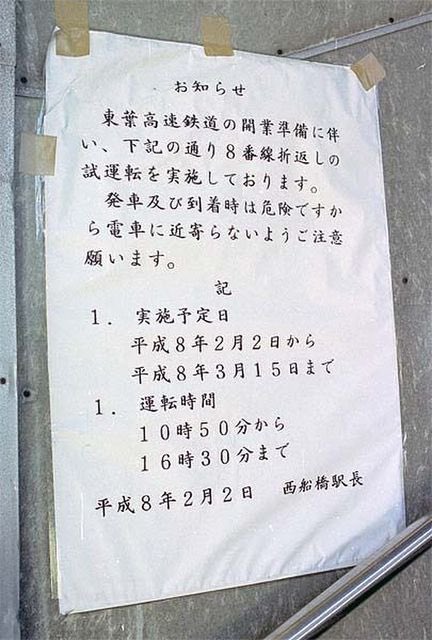 お知らせ
東葉高速鉄道の開業準備に伴
い、下記の通り８番線折返しの
試運転を実施しております。
発車及び到着時は危険ですか
ら電車に近寄らないようご注意
願います。
記
１． 実施予定日
平成８年２月２日から
平成８年３月１５日まで
１． 運転時間
１０時５０分から
１６時３０分まで
平成８年２月２日 西船橋駅長